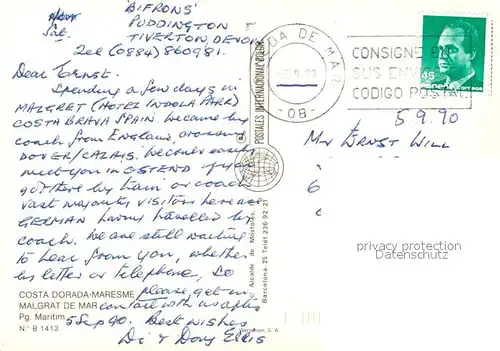 'BIFRONS'
PUDDINGTON
Sat. TIVERTON, DEVON
Tel (0884) 860981.
Dear Ernst.
Spending a few days in
MALGRET (HOTEL INDOLA PARK)
COSTA BRAVA SPAIN. We came by
coach from England, around
DOVER/CALAIS. We could easily
meet you in OSTEND if you
got there by train or coach
vast majority visitors here are
GERMAN having travelled by
coach. We are still waiting
to hear from you, whether
by letter or telephone, so
please get in
contact with us
5 Sep 90. Best wishes
Di & Doug Ellis
COSTA DORADA-MARESME
MALGRAT DE MAR
Pg. Marítim
N.º B 1413
POSTALES INTERNACIONAL COLOR
Alcalde de Móstoles,
Barcelona-25 Telef. 236-92-21
DA DE MAR
-08-
CONSIGNE EN
SUS ENVIOS
CODIGO POSTAL
45
5 9.90
Mr ERNST WILL
6
privacy protection
www.akpool.com